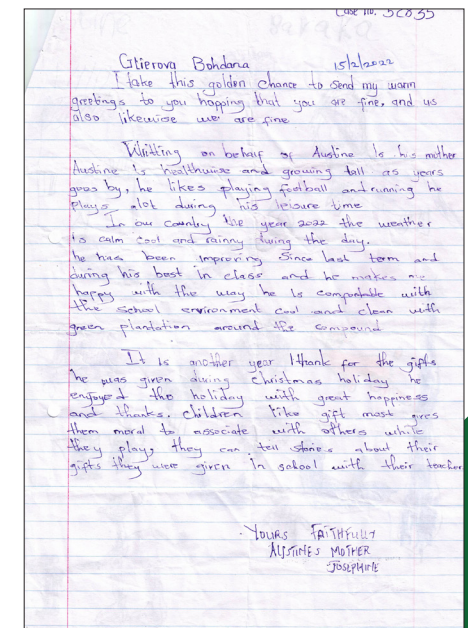 Case no. 5CB35
Gtierova Bohdana 15/2/2022
I take this golden chance to send my warm
greetings to you hopping that you are fine, and us
also likewise we are fine
Writting on behalf of Austine is his mother
Austine is healthwise and growing tall as years
goes by, he likes playing football and running he
plays alot during his leisure time
In our country the year 2022 the weather
is calm cool and rainny during the day.
he has been improving since last term and
during his best in class and he makes me
happy with the way he is compotable with
the school environment cool and clean with
green plantation around the compound
It is another year I thank for the gifts
he was given during christmas holiday he
enjoyed the holiday with great happiness
and thanks. children like gift most gives
them moral to associate with others while
they play, they can tell stories about their
gifts they were given in school with their teacher
YOURS FAITHFULLY
AUSTINES MOTHER
JOSEPHINE